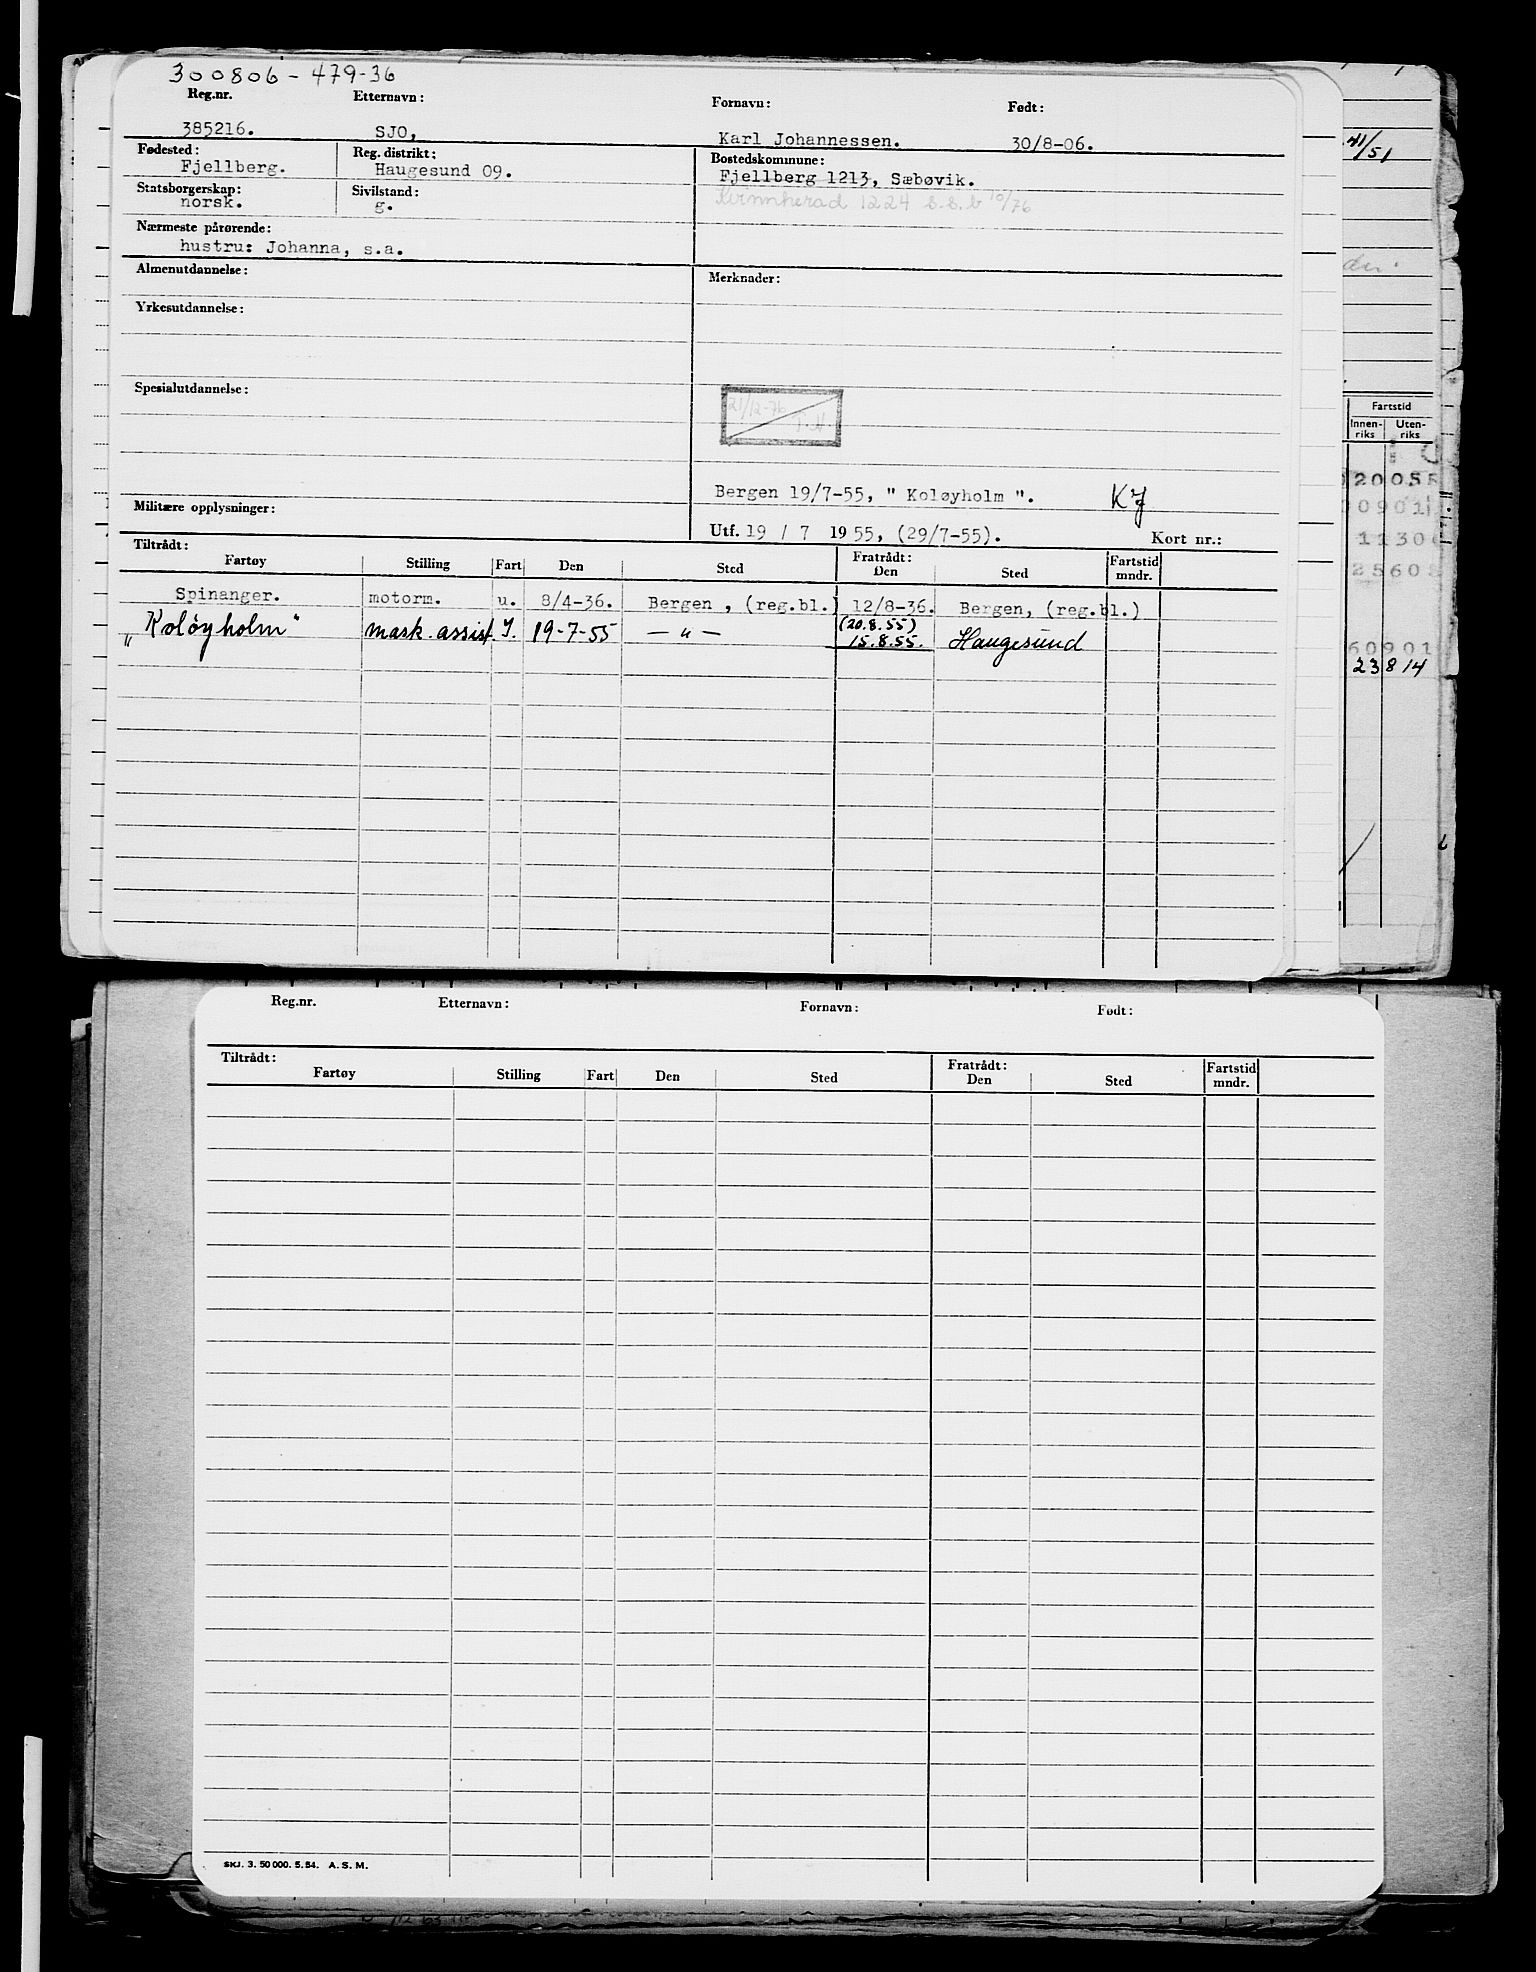 300806-479-36
Reg.nr. Etternavn: Fornavn: Født:
385216. SJO, Karl Johannessen. 30/8-06.
Fødested: Reg. distrikt: Bostedskommune:
Fjellberg. Haugesund 09. Fjellberg 1213, Sæbøvik.
Statsborgerskap: Sivilstand: Kvinnherad 1224 s.s.b 10/76
norsk. g.
Nærmeste pårørende:
hustru: Johanna, s.a.
Almenutdannelse: Merknader:
Yrkesutdannelse:
Spesialutdannelse:
21/12-76
T.N.
Bergen 19/7-55, " Koløyholm ".
Militære opplysninger:
Utf. 19 / 7 1955, (29/7-55). Kort nr.:
Tiltrådt: Fratrådt: Fartstid
Fartøy Stilling Fart Den Sted Den Sted mndr.
Spinanger. motorm. u. 8/4-36. Bergen, (reg.bl.) 12/8-36. Bergen, (reg.bl.)
(20.8.55)
„Koløyholm" mask.assist. I. 19-7-55 — " — 15.8.55. Haugesund
41/51
Fartstid
Innen-riks Uten-riks
2005
0901
1130
2560
60901
23814
Reg.nr. Etternavn: Fornavn: Født:
Tiltrådt: Fratrådt: Fartstid
Fartøy Stilling Fart Den Sted Den Sted mndr.
SKJ. 3. 50 000. 5.54. A. S. M.